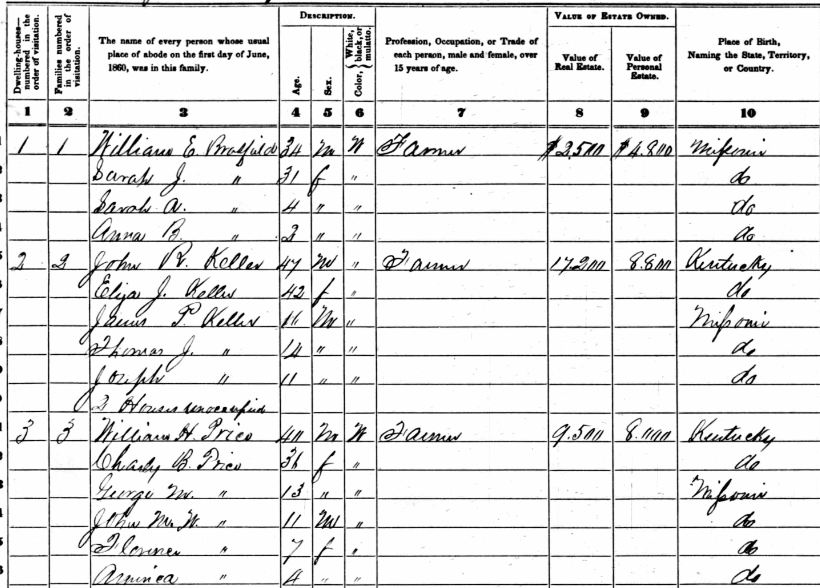 DESCRIPTION. VALUE OF ESTATE OWNED.
Dwelling-houses—numbered in the order of visitation.
Families numbered in the order of visitation.
The name of every person whose usual place of abode on the first day of June, 1860, was in this family.
Age.
Sex.
White, black, or mulatto. Color,
Profession, Occupation, or Trade of each person, male and female, over 15 years of age.
Value of Real Estate.
Value of Personal Estate.
Place of Birth, Naming the State, Territory, or Country.
1 2 3 4 5 6 7 8 9 10
1 1 William E. 34 m W Farmer $2,500 $4,800 Missouri
Sarah J. " 31 f " do
Sarah A. " 4 " " do
Anna B. " 2 " " do
2 2 John R. Keller 47 m " Farmer 17200 8.800 Kentucky
Eliza J. Keller 42 f " do
James P. Keller 16 m " Missouri
Thomas J. " 14 " " do
Joseph " 11 " " do
2 Houses unoccupied
3 3 William H. Price 40 m W Farmer 9.500 8.000 Kentucky
B. Price 36 f " do
George M. " 13 " " Missouri
John W. " 11 m " do
Florence " 7 f " do
" 4 " " do